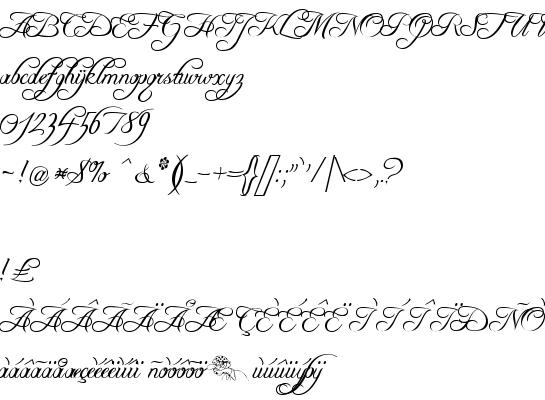 ABCDEFGHIJKLMNOPQRSTUV
abcdefghijklmnopqrstuvwxyz
0123456789
~!@*$%^&*()_-+={}[]:;"'`/|\<>,.?
!£
ÀÁÂÃÄÅÆÇÈÉÊËÌÍÎÏÐÑÒ
àáâãäåæçèéêëìíîï ñòóôõö ùúûüýþÿ